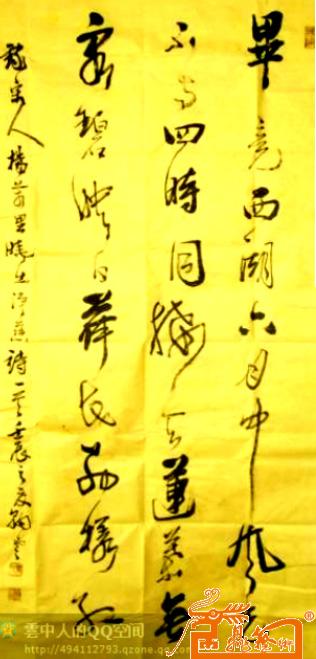 畢竟西湖六月中風光
不与四時同接天蓮葉無
窮碧映日荷花別樣紅
錄宋人楊萬里曉出淨慈詩一首壬辰之夏
雲中人的QQ空间
http://494112793.qzone.qq.com